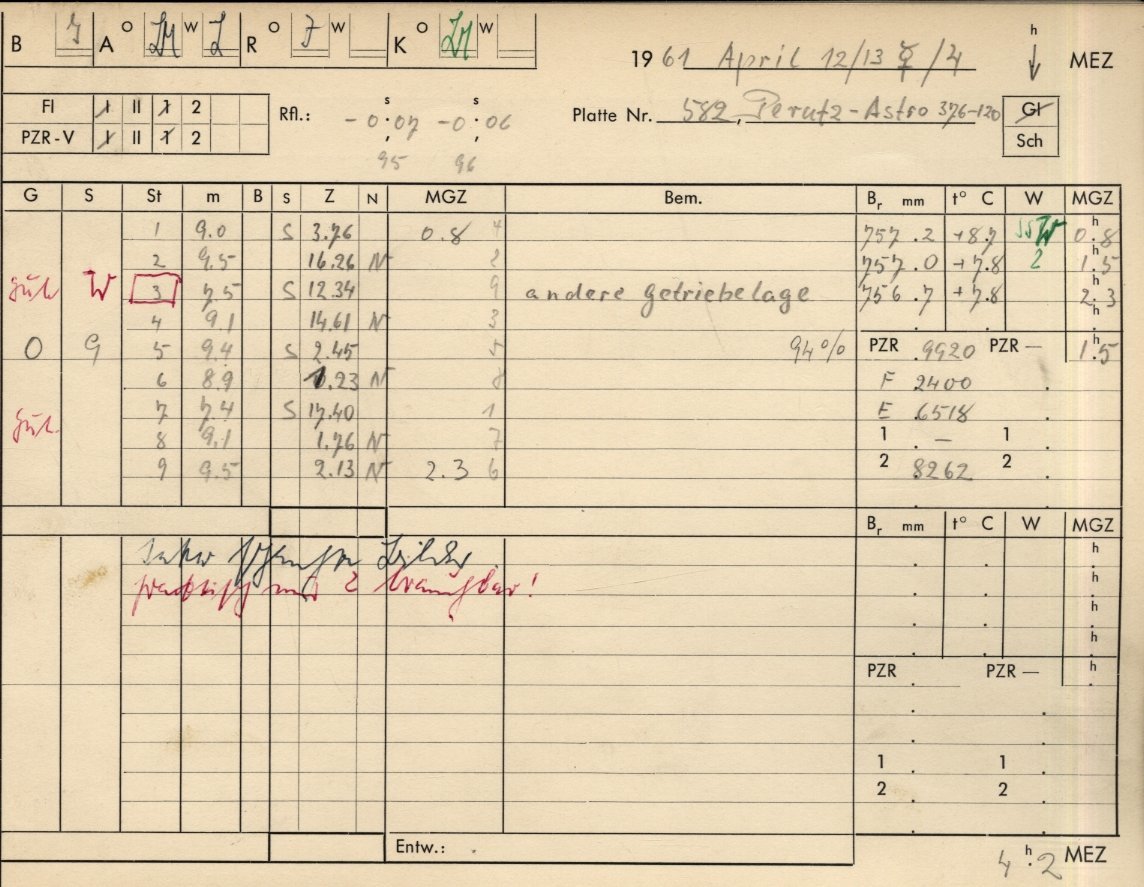 B A O W R O W K O W
1961 April 12/13 ☿/4 h MEZ
Fl I II 1 2
PZR-V I II 1 2
Rfl.: s -0.07 s -0.06
95 96
Platte Nr. 582, Perutz-Astro 376-120
Gl
Sch
G S St m B S Z N MGZ Bem. Br mm t° C W MGZ
1 9.0 S 3.76 0.8 4 757.2 +8.7 h 0.8
2 9.5 16.26 N 2 757.0 +7.8 2 h 1.5
gut W 3 7.5 S 12.34 9 andere Getriebelage 756.7 +7.8 h 2.3
4 9.1 14.61 N 3 h
0 9 5 9.4 S 2.45 5 94% PZR .9920 PZR — h 1.5
6 8.9 1.23 N 8 F 2400
gut. 7 7.4 S 17.40 1 E .6518
8 9.1 1.76 N 7 1 — 1
9 9.5 2.13 N 2.3 6 2 8262 2
Br mm t° C W MGZ
h
h
h
h
PZR PZR — h
1 1
2 2
Entw.:
4 h.2 MEZ